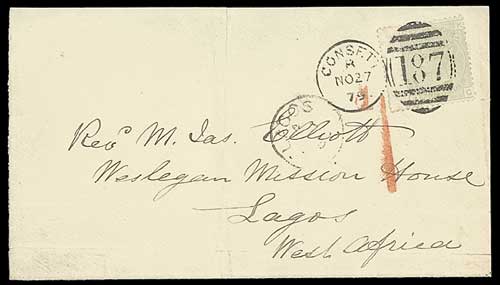 CONSETT
R
NO27
79
187
LAGOS
1
Revd M. Jas. Elliott
Wesleyan Mission House
Lagos
West Africa